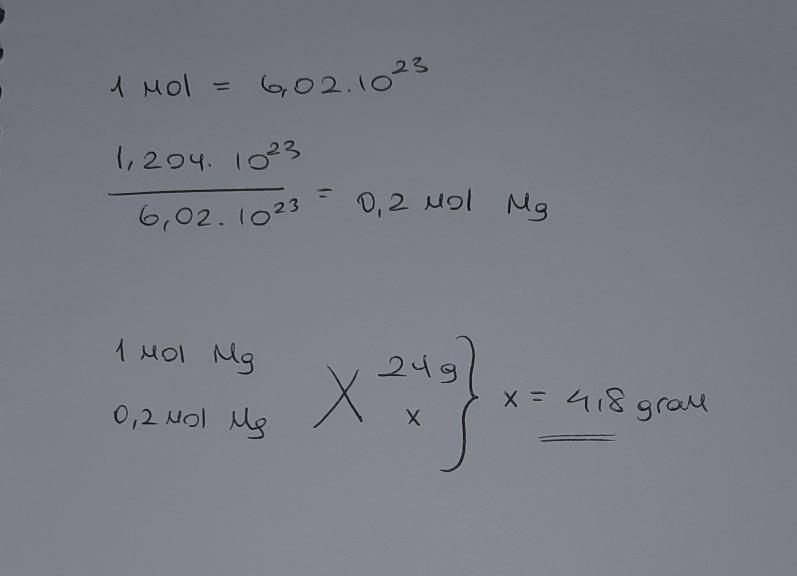 1 mol = 6,02.10²³
1,204. 10²³
6,02.10²³ = 0,2 mol Mg
1 mol Mg 24g
0,2 mol Mg x } x = 4,8 gram